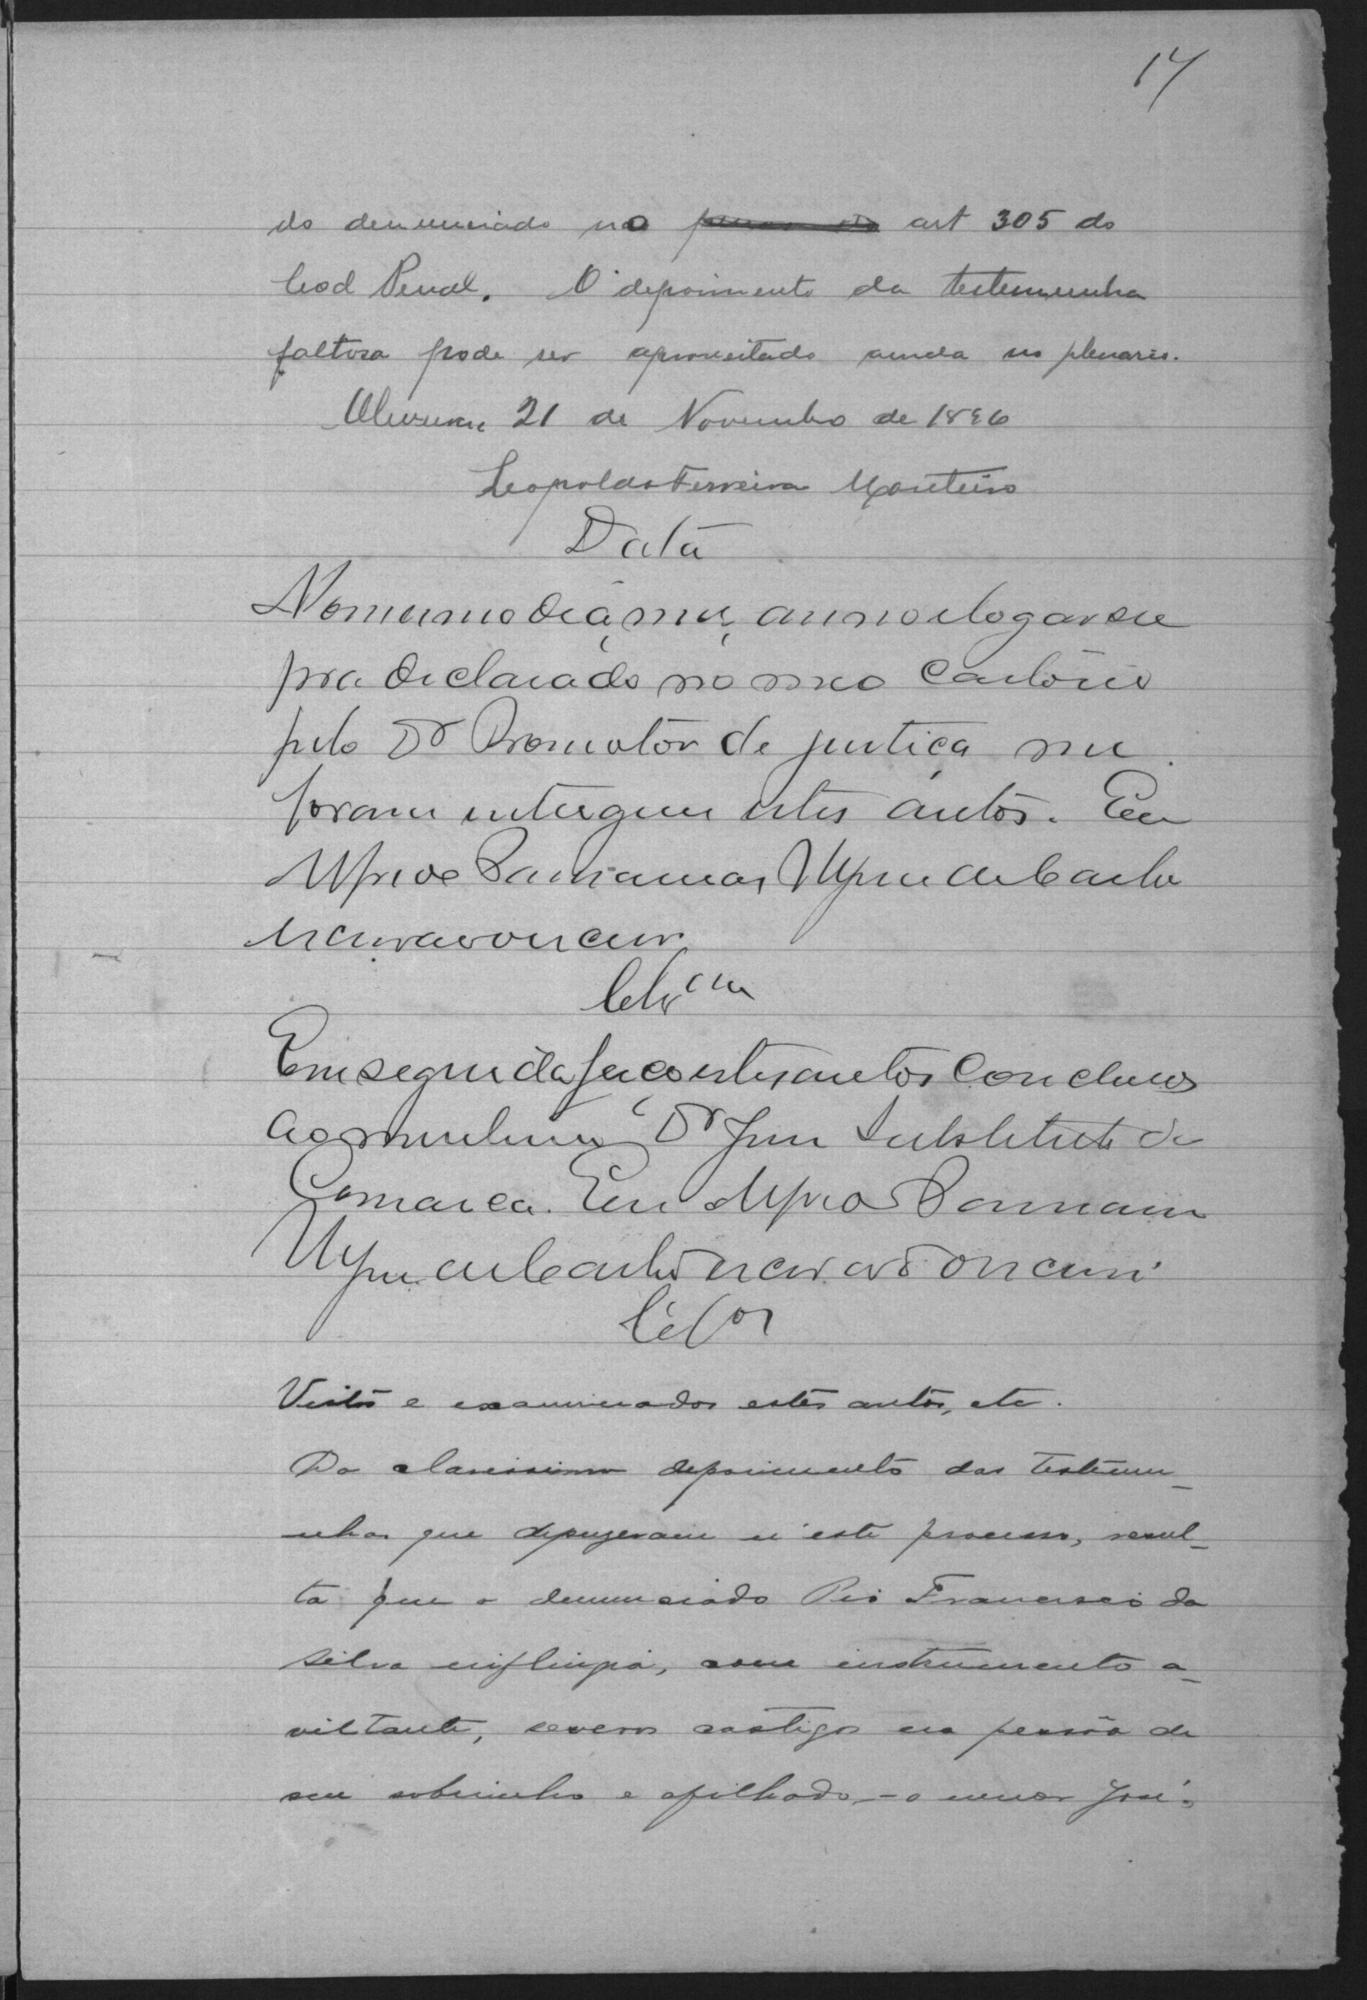 17
do denunciado no penas do art 305 do
Cod Penal. O depoimento da testemunha
faltosa pode ser aproveitado ainda no plenario.
21 de Novembro de 1896
Leopoldo Ferreira Monteiro
Data
No mesmo dia, mes, anno e logar su
pra declarado no meo Cartorio
pelo Dr Promotor de justiça me
foram entregues estes autos. Eu
escrivão escrevi.
Clsam
Em seguida faço estes autos Conclusos
ao meritissimo Dr Juiz Substituto da
Comarca. Eu
escrivão escrevi
Clsos
Vistos e examinados estes autos, etc.
Do clarissimo depoimento das testemu-
nhas que depuzeram n'este processo, resul-
ta que o denunciado Pio Francisco da
Silva inflingio, com instrumento a-
viltante, severos castigos na pessôa de
seu sobrinho e afilhado, - o menor José.